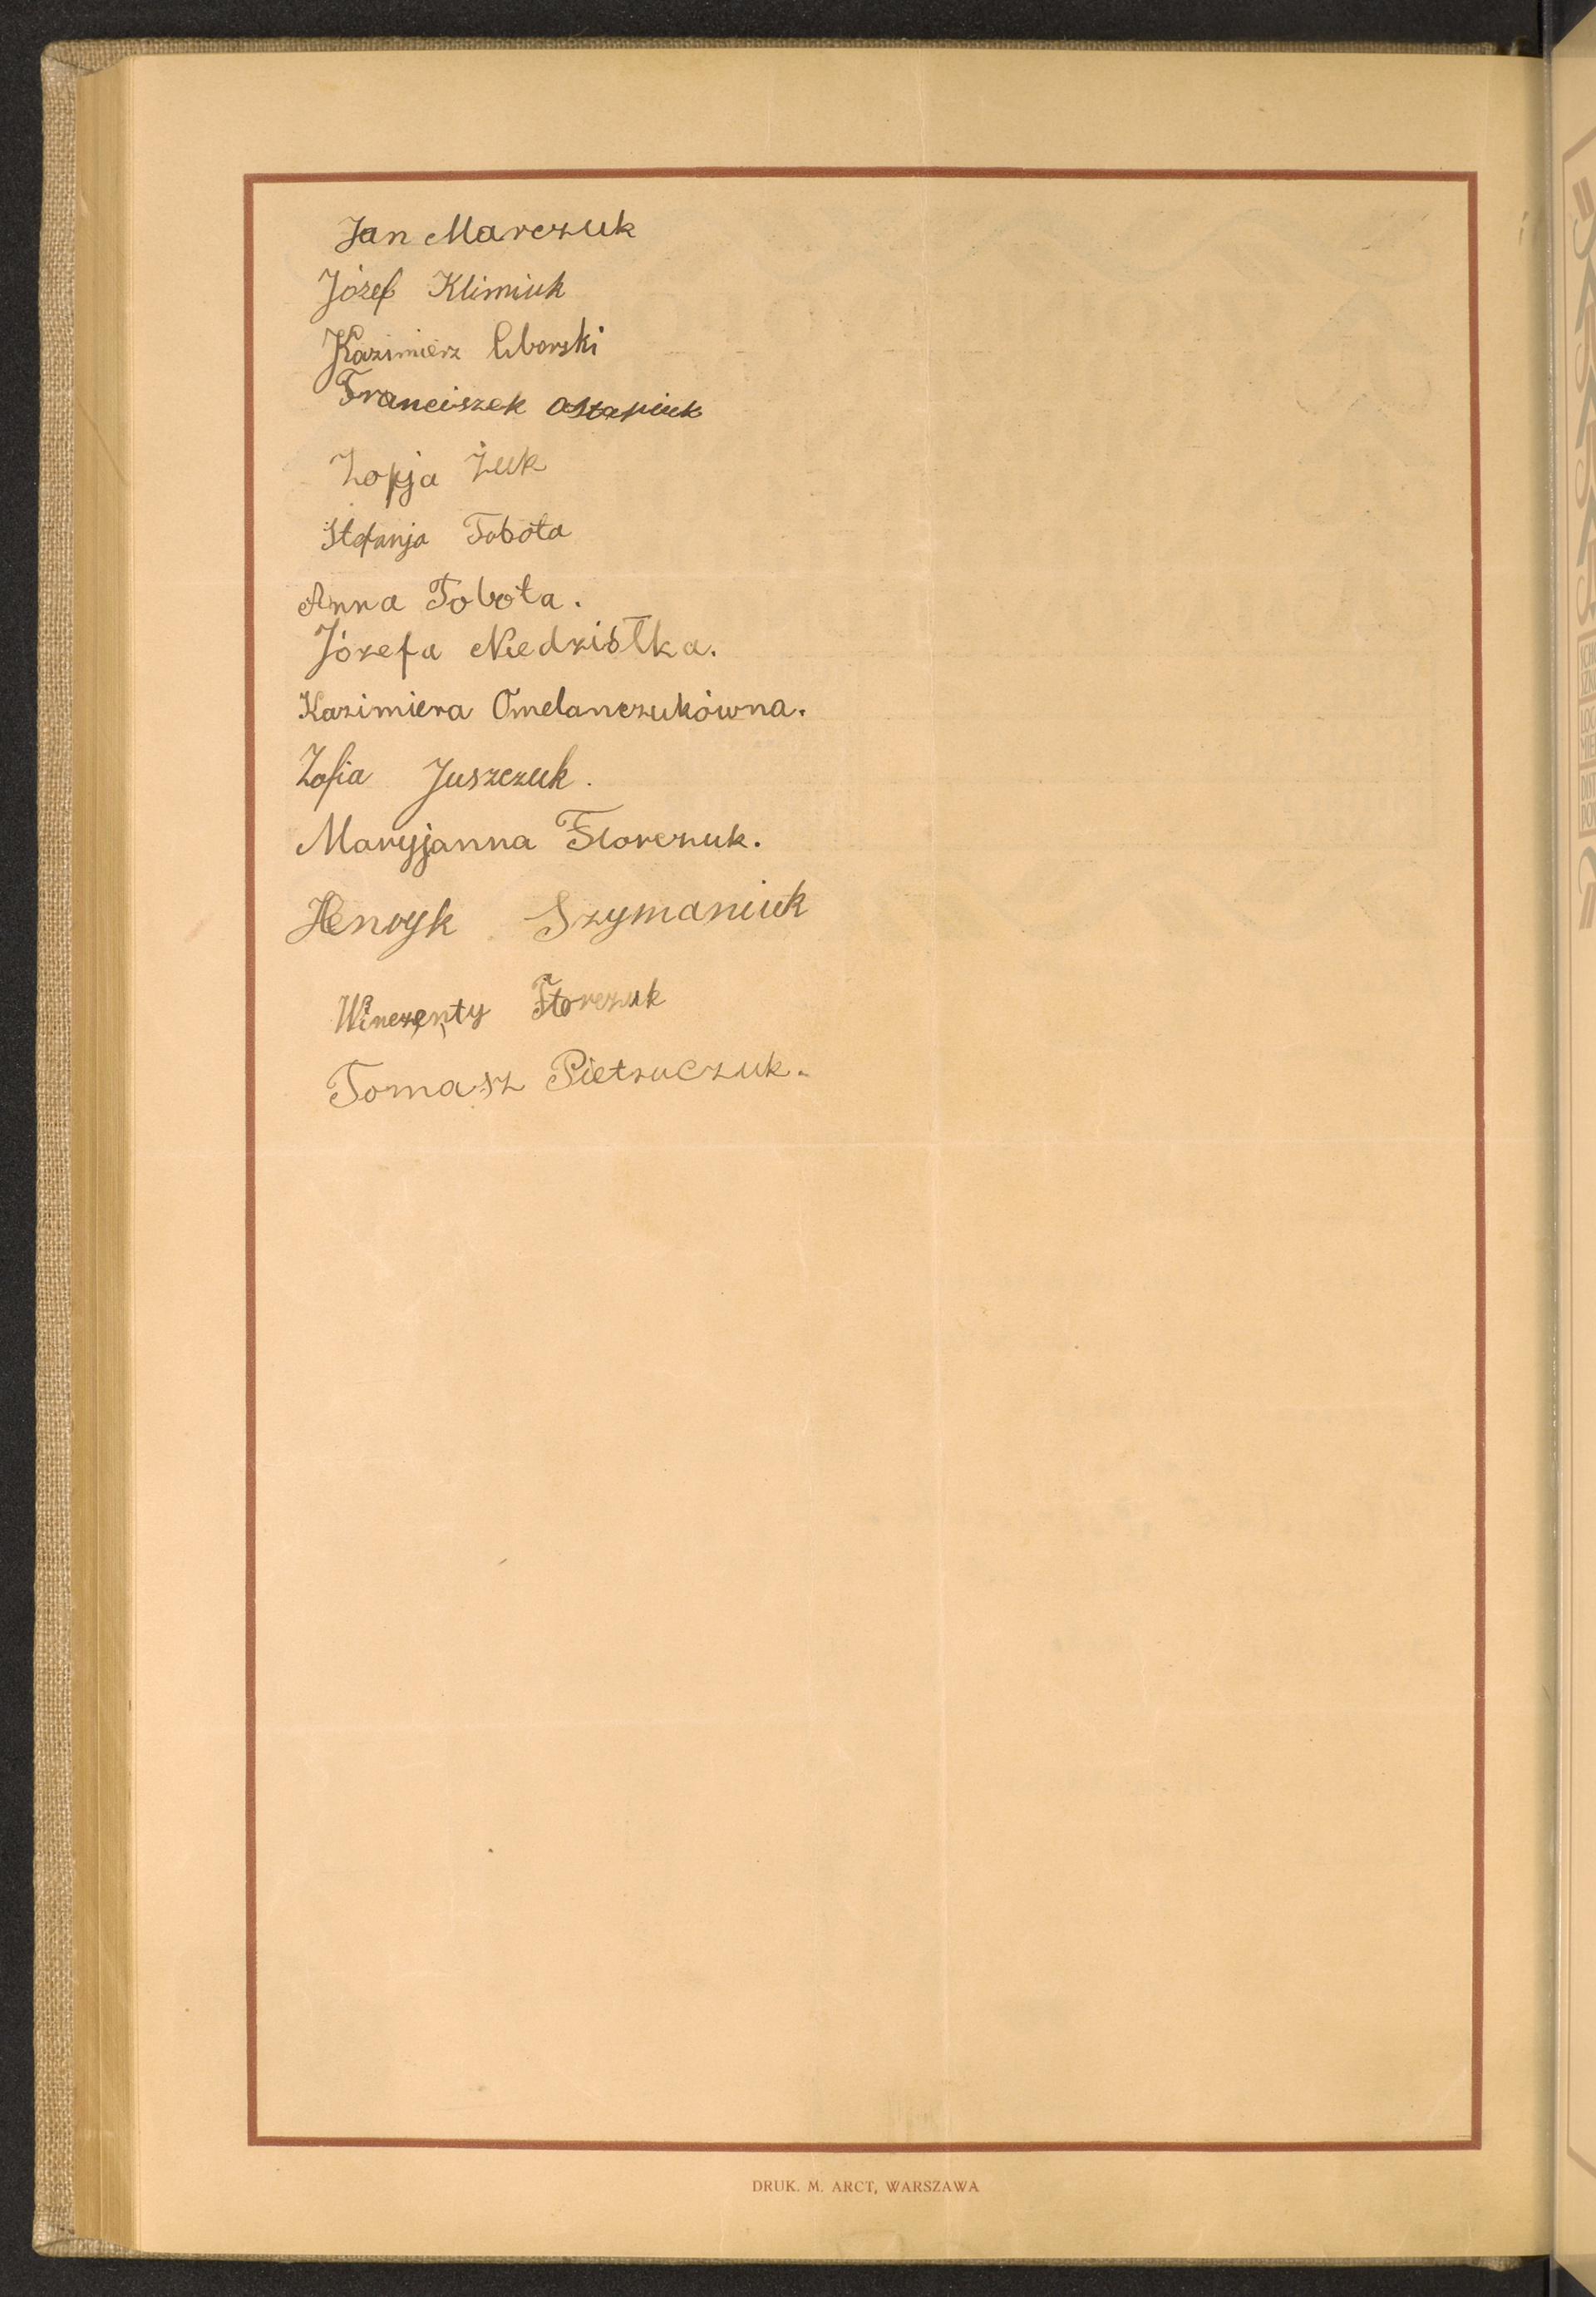 Jan Marczuk
Józef Klimiuk
Kazimierz Uborski
Franciszek Ostapiuk
Zofja Żuk
Stefanja Tobota
Anna Tobota.
Józefa Niedziółka.
Kazimiera Omelanczukówna.
Zofia Juszczuk.
Maryjanna Florczuk.
Henryk Szymaniuk
Winczenty Florczuk
Tomasz Pietruczuk.
DRUK. M. ARCT, WARSZAWA